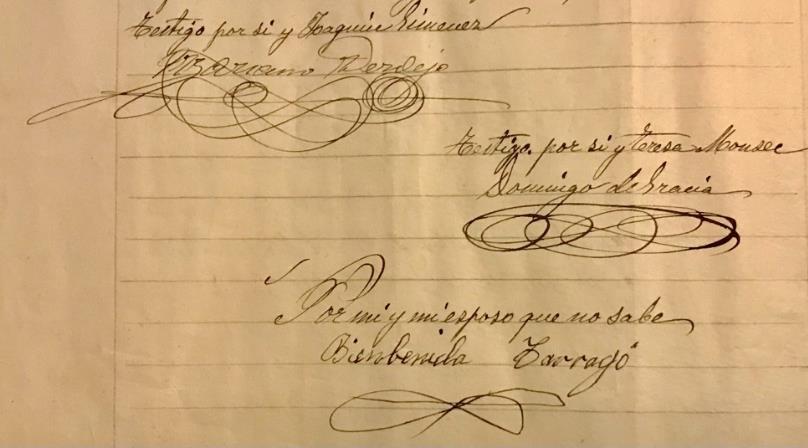 Testigo por si y Joaquin Gimenez
Mariano Verdejo
Testigo. por si y Teresa Monsec
Domingo de Gracia
Por mi y mi esposo que no sabe
Bienbenida Tarragó